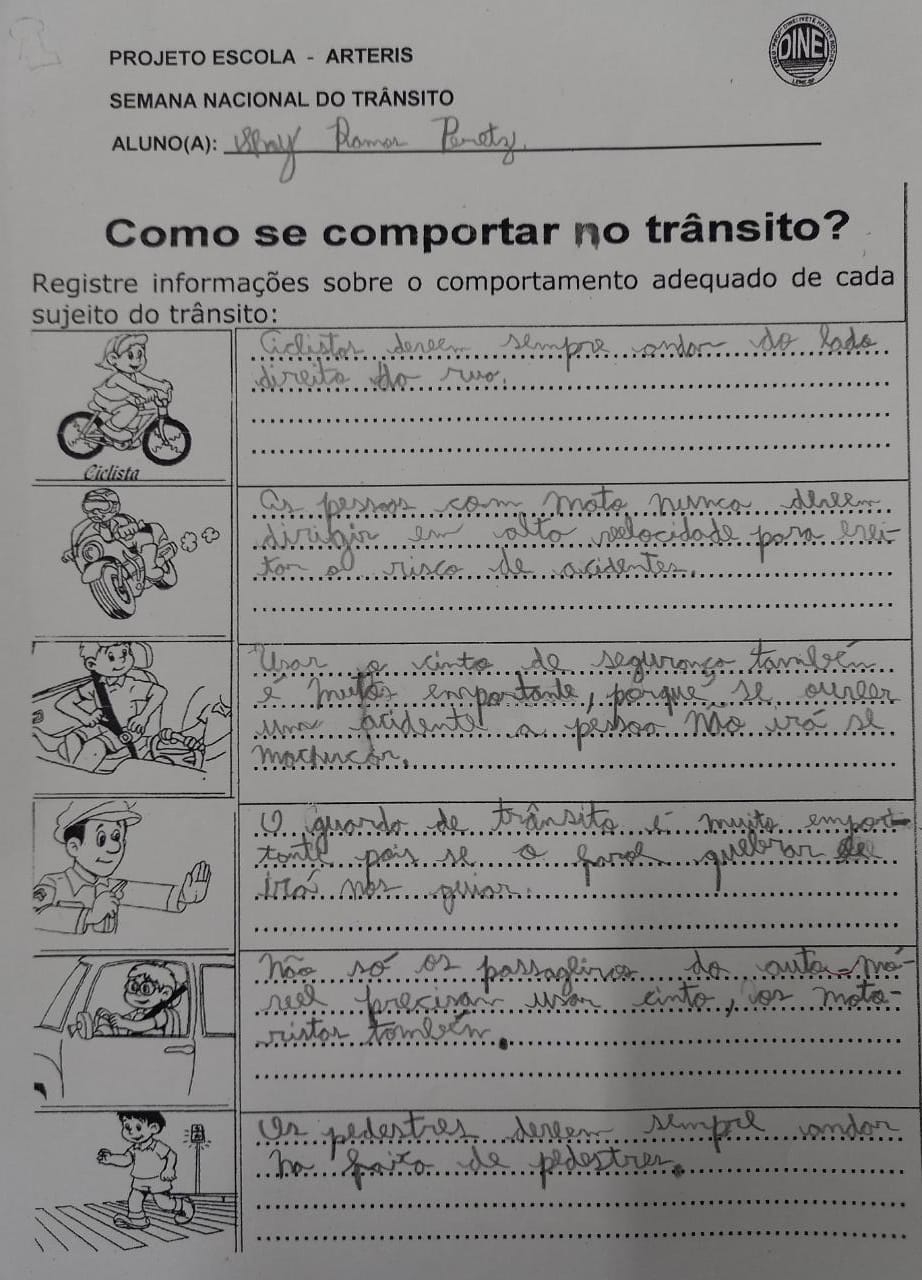 PROJETO ESCOLA - ARTERIS
DINEI
SEMANA NACIONAL DO TRÂNSITO
ALUNO(A): Ramos
Como se comportar no trânsito?
Registre informações sobre o comportamento adequado de cada
sujeito do trânsito:
Ciclista
Ciclistas devem sempre andar do lado
direito da rua.
As pessoas com moto nunca devem
dirigir em alta velocidade para evei-
tar o risco de acidentes.
Usar o cinto de segurança também
é muito emportante, porque se ouver
um acidente a pessoa não irá se
machucar.
O guarda de trânsito é muito empor-
tante pois se o farol quebrar ele
irá nos guiar.
Não só os passageiros do auto-mó-
vel precisam usar cinto, os moto-
ristas também.
Os pedestres devem sempre andar
na faixa de pedestres.